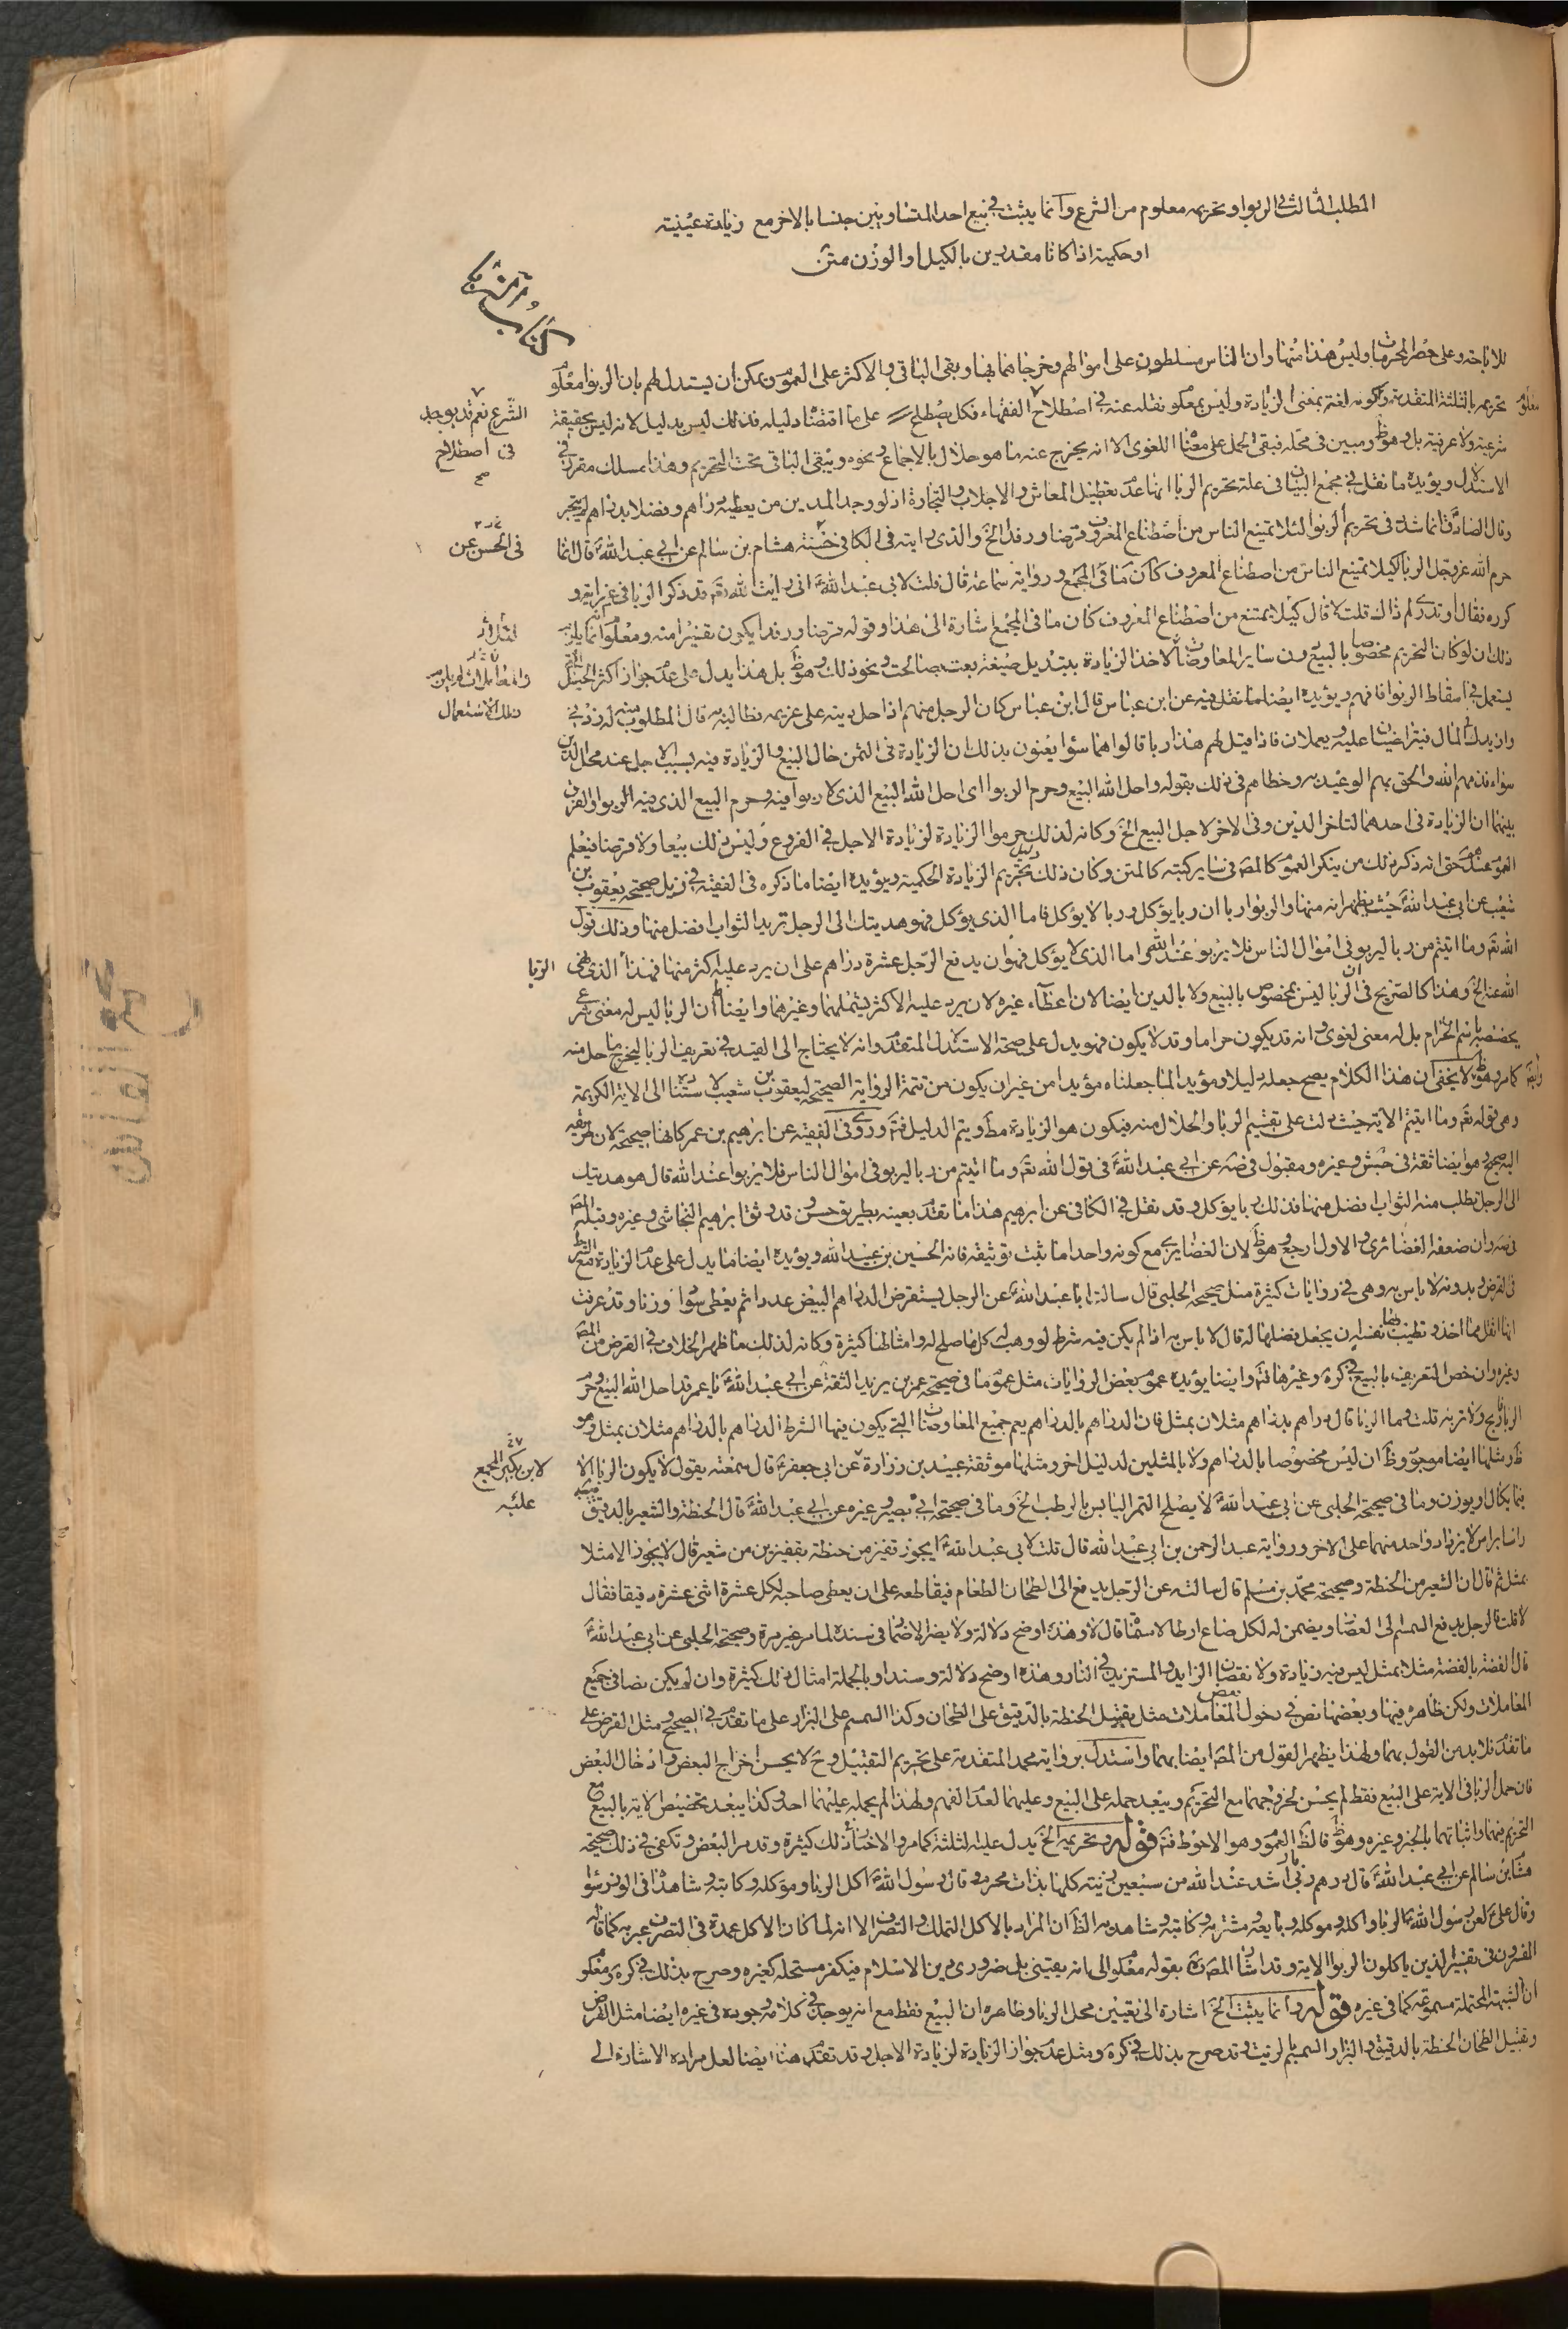 المطلب الثالث في الربوا وتحريمه معلوم من الشرع وانما يثبت في بيع احد المتساويين جنسا بالاخر مع زيادة عينية
او حكمية اذا كانا مقدرين بالكيل او الوزن متن
كتاب الربا
للاباحة وعلى حصر المحرمات وليس هذا منها وان الناس مسلطون على اموالهم وخرجا بها وبقى الباقي والاكثر على العموم يمكن ان يستدل لهم بان الربوا معلوم
تحريمه بالثلثة المتقدمة وكونه لغة بمعنى الزيادة وليس بمعلوم نقله عنه في اصطلاح الفقهاء فكل يصطلح على ما اقتضاه دليله فذلك ليس بدليل لانه ليس بحقيقة
الشرع نعم قد يوجد
في اصطلاح
صح
شرعية ولا عرفية بل وهو ظ ومبين في محله فبقى الحمل على معناه اللغوي الا انه يخرج عنه ما هو حلال بالاجماع ونحوه ويبقى الباقي تحت التحريم وهذا مسلك مقرر في
الاستدلال ويؤيده ما نقل في مجمع البيان في علة تحريم الربا انها عدم تعطيل المعاش والاجلاب والتجارة اذ لو وجد المدين من يعطيه دراهم وفضلا بدراهم لم يتجر
وقال الصادق ع انما شدد في تحريم الربوا لئلا يمتنع الناس من اصطناع المعروف قرضا ورفدا الخ والذي رايته في الكافي حسنة هشام بن سالم عن ابي عبد الله ع قال انما
في الحسن عن
حرم الله عز وجل الربا لكيلا يمتنع الناس من اصطناع المعروف كان ما في المجمع ورواية سماعة قال قلت لابي عبد الله ع اني رايت الله تعم قد ذكر الربا في غير اية و
كرره فقال او تدرى لم ذاك قلت لا قال كيلا يمتنع من اصطناع المعروف كان ما في المجمع اشارة الى هذا وقوله قرضا ورفدا يكون تفسيرا منه ومعلوم
ذلك ان لو كان التحريم مخصوصا بالبيع دون ساير المعاوضات لاخذ الزيادة بتبديل صيغة بعت بصالحت ونحو ذلك وهو ظ بل هذا يدل على عدم جواز اكثر الحيل
يستعمل في اسقاط الربوا فافهم ويؤيده ايضا ما نقل فيه عن ابن عباس قال ابن عباس كان الرجل منهم اذا حل دينه على غريمه فطالبه به قال المطلوب منه له زدني في
تلك الاستعمال
وازيدك في المال فيتراضيان عليه ويعملان فاذا قيل لهم هذا ربا قالوا هما سواء يعنون بذلك ان الزيادة في الثمن حال البيع والزيادة فيه بسبب الاجل عند محل الدين
سواء فذمهم الله والحق بهم الوعيد به وخطاهم في ذلك بقوله واحل الله البيع وحرم الربوا اي احل الله البيع الذي لا ربوا فيه وحرم البيع الذي فيه الربوا والفرق
بينهما ان الزيادة في احدهما لتاخر الدين وفي الاخر لاجل البيع الخ وكانه لذلك حرموا الزيادة لزيادة الاجل في الفروع وليس ذلك بيعا ولا قرضا فيعلم
العموم عندهم حتى انه ذكر ذلك من ينكر العموم كالمص في ساير كتبه كالمتن وكان ذلك دليل تحريم الزيادة الحكمية ويؤيده ايضا ما ذكره في الفقيه في ذيل صحيحة يعقوب بن
شعيب عن ابي عبد الله ع حيث يظهر انه منها والربوا ربا ان ربا يؤكل وربا لا يؤكل فاما الذي يؤكل فهو هديتك الى الرجل تريد الثواب افضل منها وذلك قول
الله تعم وما اتيتم من ربا ليربو في اموال الناس فلا يربو عند الله واما الذي لا يؤكل فهو ان يدفع الرجل عشرة دراهم على ان يرد عليه اكثر منها فهذا الذي نهى
الربا
الله عنه الخ وهذا كالصريح في ان الربا ليس بمخصوص بالبيع ولا بالدين ايضا لان اعطاء غيره لان يرد عليه الاكثر يشملهما وغيرهما وايضا ان الربا ليس له معنى شرعي
يختص باسم الحرام بل له معنى لغوي وانه قد يكون حراما وقد لا يكون فهو يدل على صحة الاستدلال المتقدم وانه لا يحتاج الى القيد في تعريف الربا ليخرج ما حل منه
كما مر وهو ظ ولا يخفى ان هذا الكلام يصح جعله دليلا ومؤيدا لما جعلناه مؤيدا من غير ان يكون من تتمة الرواية الصحيحة ليعقوب بن شعيب لاستناده الى الاية الكريمة
وهي قوله تعم وما اتيتم الاية حيث دلت على تقسيم الربا والحلال منه فيكون هو الزيادة مط ويتم الدليل فتم وروى في الفقيه عن ابرهيم بن عمر كانها صحيحة لان طريقه
اليه صحيح وهو ايضا ثقة في جش وغيره ومقبول في صه عن ابي عبد الله ع في قول الله تعم وما اتيتم من ربا ليربو في اموال الناس فلا يربوا عند الله قال هو هديتك
الى الرجل تطلب منه الثواب افضل منها فذلك ربا يؤكل وقد نقل في الكافي عن ابرهيم هذا ما تقدم بعينه بطريق حسن وقد وثق ابرهيم النجاشي وغيره وقبله المص
في صه وان ضعفه الغضائري والاول ارجح وهو ظ لان الغضايري مع كونه واحدا ما يثبت توثيقه فانه الحسين بن عبيد الله ويؤيده ايضا ما يدل على عدم الزيادة مع الشرط
في القرض وبدونه لا باس به وهي في روايات كثيرة مثل صحيحة الحلبي قال سالت ابا عبد الله ع عن الرجل يستقرض الدراهم البيض عددا ثم يعطي سودا وزنا وقد عرفت
انها اثقل مما اخذ وتطيب بها نفسه ان يجعل فضلها له قال لا باس به اذا لم يكن فيه شرط لو وهبها كلها صلح له وامثالها كثيرة وكانه لذلك ما ظهر الخلاف في القرض من المص
وغيره وان خص التعريف بالبيع في كره وغيرها فتم وايضا يؤيده عموم بعض الروايات مثل عموم ما في صحيحة عمر بن يزيد الثقة عن ابي عبد الله ع يا عمر قد احل الله البيع وحرم
الربا فاربح ولا تربه قلت وما الربا قال دراهم بدراهم مثلان بمثل فان الدراهم بالدراهم يعم جميع المعاوضات التي يكون فيها الشرط الدراهم بالدراهم مثلان بمثل وهو
ظ ومثلها ايضا موجود وظ ان ليس مخصوصا بالدراهم ولا بالمثلين لدليل اخر ومثلها موثقة عبيد بن زرارة عن ابي جعفر ع قال سمعته يقول لا يكون الربا الا
لابن بكير المجمع
عليه
فيما يكال او يوزن وما في صحيحة الحلبي عن ابي عبد الله ع لا يصلح التمر اليابس بالرطب الخ وما في صحيحة ابي بصير وغيره عن ابي عبد الله ع قال الحنطة والشعير بالدقيق
راسا براس لا يزداد واحد منهما على الاخر ورواية عبد الرحمن بن ابي عبد الله قال قلت لابي عبد الله ع ايجوز قفيز من حنطة بقفيزين من شعير قال لا يجوز الا مثلا
بمثل ثم قال ان الشعير من الحنطة وصحيحة محمد بن مسلم قال سالته عن الرجل يدفع الى الطحان الطعام فيقاطعه على ان يعطى صاحبه لكل عشرة اثنى عشرة دقيقا فقال
لا قلت فالرجل يدفع السمسم الى العصار ويضمن له لكل صاع ارطالا مسماة قال لا وهذه اوضح دلالة ولا يضر الاضمار في سنده لما مر غير مرة وصحيحة الحلبي عن ابي عبد الله ع
قال الفضة بالفضة مثلا بمثل ليس فيه زيادة ولا نقصان الزايد والمستزيد في النار وهذه اوضح دلالة وسندا وبالجملة امثال ذلك كثيرة وان لم يكن نصا في جميع
المعاملات ولكن ظاهرة فيها وبعضها نص في دخول بعض المعاملات مثل تقبيل الحنطة بالدقيق على الطحان وكذا السمسم على البزار على ما تقدم في الصحيح ومثل القرض على
ما تقدم فلا بد من القول بهما ولهذا يظهر القول من المص ايضا بهما واستدل برواية محمد المتقدمة على تحريم التقبيل وح لا يحسن اخراج البعض وادخال البعض
فان حمل الربا في الاية على البيع فقط لم يحسن لخروجهما مع التحريم ويبعد حمله على البيع وعليهما لعدم الفهم ولهذا لم يحمله عليهما احد وكذا يبعد تخصيص الاية بالبيع مع
التحريم فيهما واثباتهما بالخبر وغيره وهو ظ فالظ العموم وهو الاحوط فتم قوله وتحريمه الخ يدل عليه الثلثة كما مر والاخبار في ذلك كثيرة وقد مر البعض وتكفي في ذلك صحيحة
هشام بن سالم عن ابي عبد الله ع قال درهم ربا اشد عند الله من سبعين زنية كلها بذات محرم وقال رسول الله ص اكل الربا وموكله وكاتبه وشاهداه في الوزر سواء
وقال علي ع لعن رسول الله ص الربا واكله وموكله وبايعه ومشتريه وكاتبه وشاهديه الظ ان المراد بالاكل التملك والتصرف الا انه لما كان الاكل عمدة في التصرف عبر به كما قاله
المفسرون في تفسير الذين ياكلون الربوا الاية وقد اشار المص ره بقوله معلوم الى انه يقيني بل ضروري من دين الاسلام فيكفر مستحله كغيره وصرح بذلك في كره ومعلوم
ان الشبهة المحتملة مسموعة كما في غيره قوله وانما يثبت الخ اشارة الى تعيين محل الربا وظاهره ان البيع فقط مع انه يوجد في كلامه وجوده في غيره ايضا مثل القرض
وتقبيل الطحان الحنطة بالدقيق والبزار السمسم بالزيت وقد صرح بذلك في كره ومثل عدم جواز الزيادة لزيادة الاجل وقد تقدم هنا ايضا لعل مراده الاشارة الى